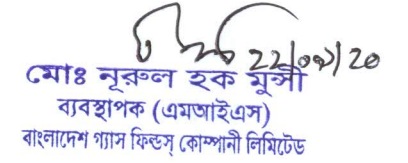 22/09/20
মোঃ নূরুল হক মুন্সী
ব্যবস্থাপক (এমআইএস)
বাংলাদেশ গ্যাস ফিল্ডস্ কোম্পানী লিমিটেড